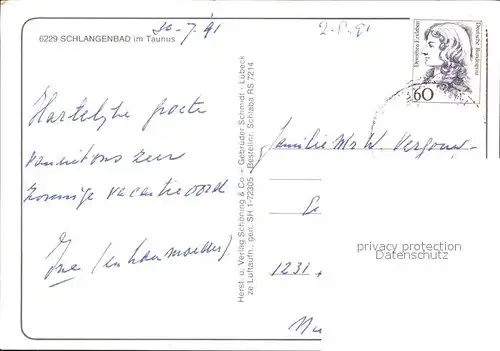 6229 SCHLANGENBAD im Taunus
30-7-'91
2-8-91
Dorothea Erxleben
Deutsche Bundespost
60
Hartelyke groete
vanuit ons zeer
zonnige vacantieoord
Ine (en haar moeder)
Herst. u. Verlag Schöning & Co + Gebrüder Schmidt · Lübeck
ze Luftaufn., gen. SH 1-72305 · Bestellnr. Schlaba RS 7214
Familie Mr W.
1231
privacy protection
Datenschutz